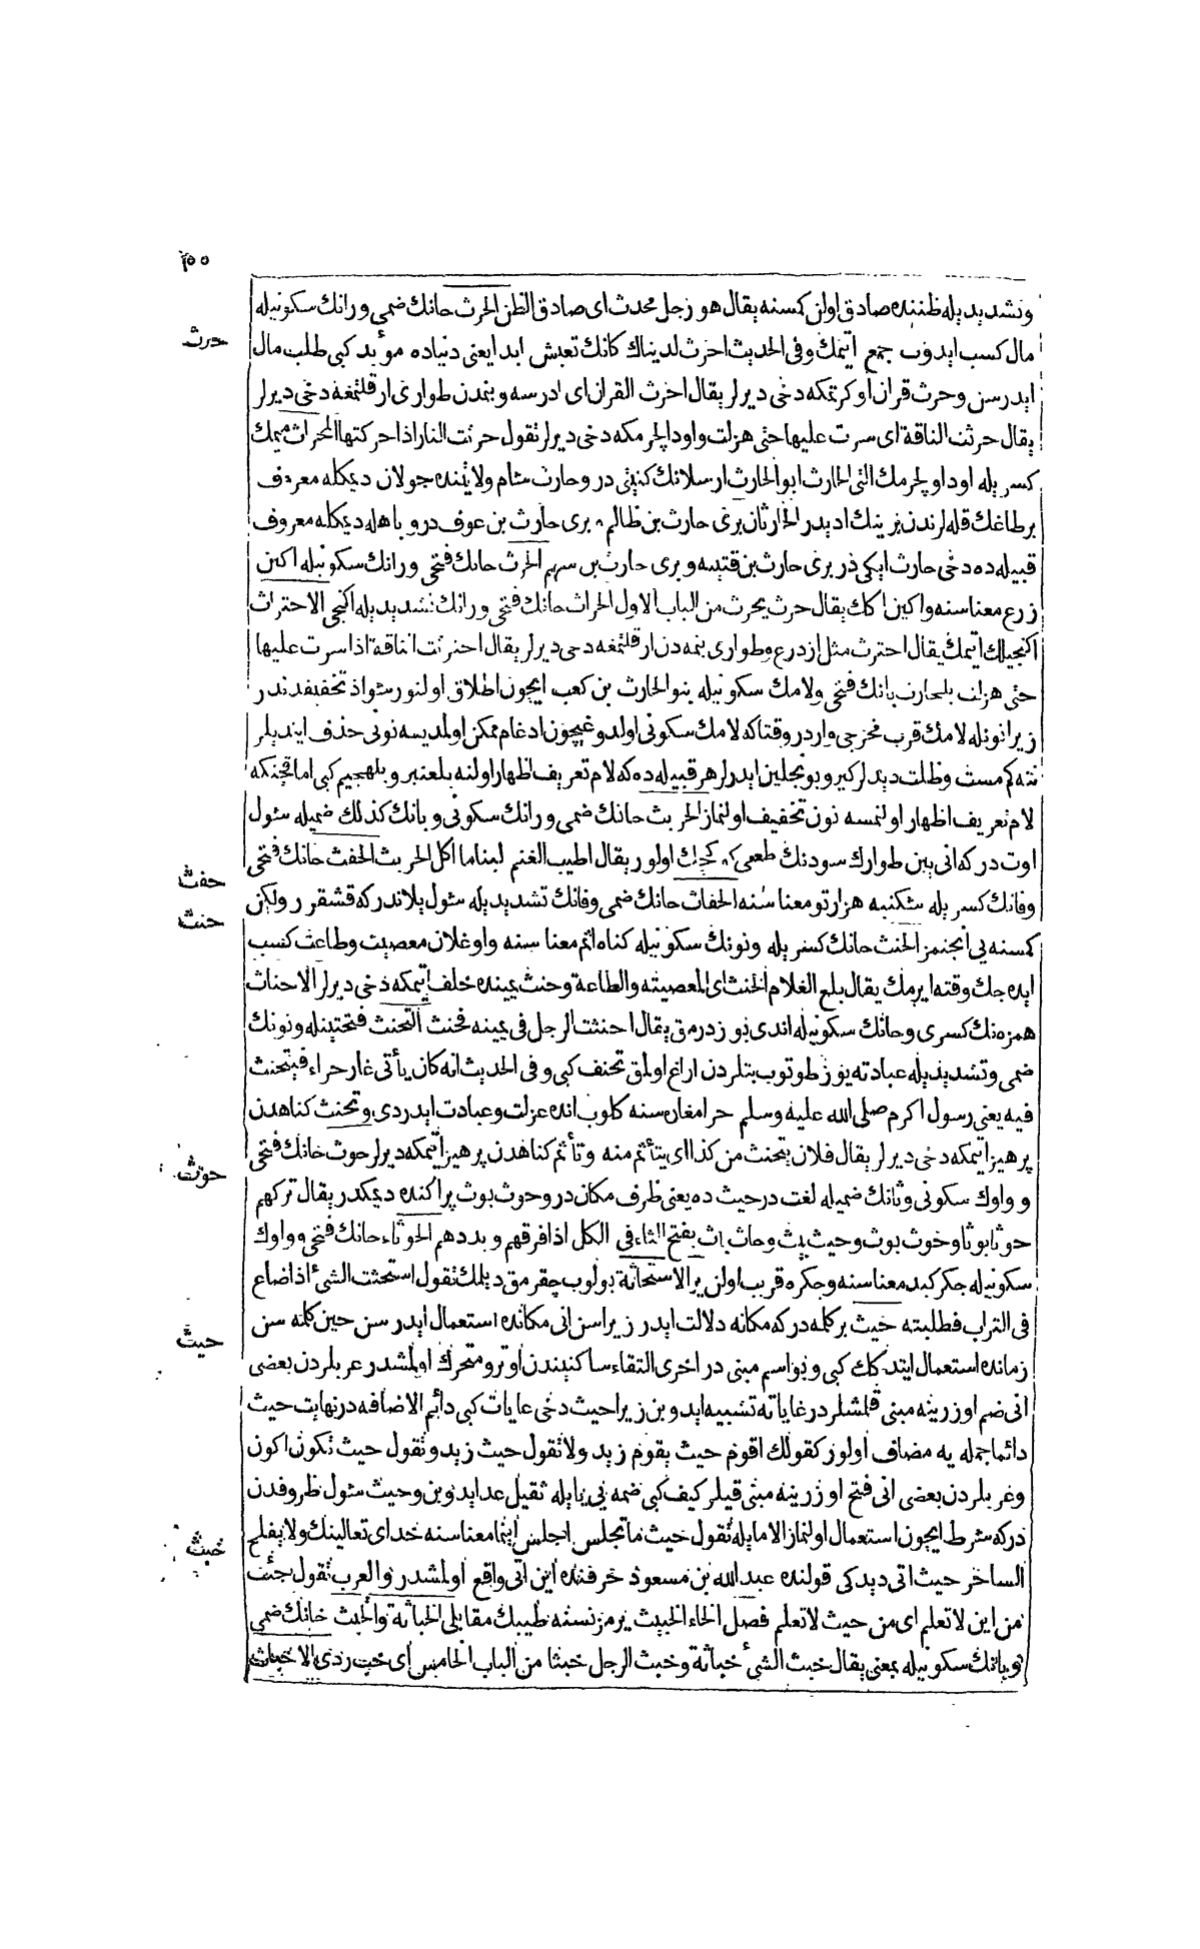 ٣٥٥
وتشديد يله ظننده صادق اولن كمسنه يقال هو رجل محدث اى صادق الظن الحرث حانك ضمى ورانك سكونيله
حرث
مال كسب ايدوب جمع ايتمك وفى الحديث احرث لدنياك كانك تعيش ابدا يعنى دنياده مؤبد كبى طلب مال
ايدرسن وحرث قران اوكرنمكه دخى ديرلر يقال احرث القران اى ادرسه وبنمدن طوارى ارقلتمغه دخى ديرلر
يقال حرثت الناقة اى سرت عليها حتى هزلت واود الجرمكه دخى ديرلر تقول حرثت النار اذا حركتها المحراث ميمك
كسر يله اود اولجرمك التى الحارث ابو الحارث ارسلانك كنيتى در وحارث شام ولايتنده جولان ديمكله معروف
بر طاغك قله لرندن برينك اديدر الحارثان برى حارث بن ظالم برى حارث بن عوف در وباهله ديمكله معروف
قبيله ده دخى حارث ايكى در برى حارث بن قتيبه وبرى حارث بن سهم الحرث حانك فتحى ورانك سكونيله اكين
زرع معناسنه واكين اكمك يقال حرث يحرث من الباب الاول الحراث حانك فتحى ورانك تشديديله اكنجى الاحتراث
اكنجيلك ايتمك يقال احترث مثل ازدرع وطوارى بنمه دن ارقلتمغه دخى ديرلر يقال احترثت الناقة اذا سرت عليها
حتى هزلت بلحارث بانك فتحى ولامك سكونيله بنو الحارث بن كعب ايچون اطلاق اولنور شواذ تخفيفدندر
زيرا نونله لامك قرب مخرجى واردر وقتاكه لامك سكونى اولدوغيچون ادغام ممكن اولمديسه نونى حذف ايتديلر
نته كم مست وظلت ديدلركبر وبو نجلين ايدرلر هر قبيله ده كه لام تعريف اظهار اولنه بلعنبر وبلهجيم كبى اما قچنكه
لام تعريف اظهار اولنمسه نون تخفيف اولنماز الحربث حانك ضمى ورانك سكونى وبانك كذلك ضميله شول
اوت در كه انى يين طوارك سودنك طعمى اولور يقال اطيب الغنم لبنا ما اكل الحربث الحفث حانك فتحى
حفث
وفانك كسر يله شكنبه هزارتو معناسنه الحفاث حانك ضمى وفانك تشديديله شول يلاندر كه قشقرر ولكن
حنث
كمسنه يى انجنمز الحنث حانك كسر يله ونونك سكونيله كناه اثم معناسنه واوغلان معصيت وطاعت كسب
ايده جك وقته ايرمك يقال بلغ الغلام الحنث اى المعصيته والطاعة وحنث يمينده خلف ايتمكه دخى ديرلر الاحناث
همزه نك كسرى وحانك سكونيله اندى بوزدرمق يقال احنثت الرجل فى يمينه فحنث التحنث فتحتينله ونونك
ضمى وتشديديله عبادته يوز طوتوب بتلردن اراغ اولمق تحنف كبى وفى الحديث انه كان يأتى غار حراء فيتحنث
فيه يعنى رسول اكرم صلى الله عليه وسلم حرا مغاره سنه كلوب انده عزلت وعبادت ايدردى وتحنث كناهدن
پرهيز ايتمكه دخى ديرلر يقال فلان يتحنث من كذا اى يتأثم منه وتأثم كناهدن پرهيز ايتمكه ديرلر حوث حانك فتحى
حوث
وواوك سكونى وثانك ضميله لغت در حيث ده يعنى ظرف مكان در وحوث بوث پراكنده ديمكدر يقال تركهم
حوثا بوثا وحوث بوث وحيث بيث وحاث باث بفتح الثاء فى الكل اذا فرقهم وبددهم الحوثاء حانك فتحى وواوك
سكونيله جكر كبد معناسنه وجكره قريب اولن ير الاستحاثة بولوب چقرمق ديلمك تقول استحثت الشئ اذا ضاع
فى التراب فطلبته حيث بر كلمه در كه مكانه دلالت ايدر زيرا سن انى مكانده استعمال ايدرسن حين كلمه سن
حيث
زمانده استعمال ايتدكك كبى وبو اسم مبنى در اخرى التقاء ساكنيندن اوترو متحرك اولمشدر عربلردن بعضى
انى ضم اوزرينه مبنى قلمشلر در غاياته تشبيه ايدوبن زيرا حيث دخى غايات كبى دائم الاضافه در نهايت حيث
دائما جمله يه مضاف اولور كقولك اقوم حيث يقوم زيد ولا تقول حيث زيد وتقول حيث تكون اكون
وعربلردن بعضى انى فتح اوزرينه مبنى قيلر كيف كبى ضمه يى يا يله ثقيل عد ايدوبن وحيث شول ظروفدن
در كه شرط ايچون استعمال اولنماز الا ما يله تقول حيث ما تجلس اجلس اينما معناسنه خداى تعالينك ولا يفلح
خبث
الساحر حيث اتى ديدكى قولنده عبد الله بن مسعود حرفنده اين اتى واقع اولمشدر والعرب تقول جئت
من اين لا تعلم اى من حيث لا تعلم فصل الخاء الخبيث يرمز نسنه طيبك مقابلى الخباثة والخبث خانك ضمى
وبانك سكونيله بمعنى يقال خبث الشئ خباثة وخبث الرجل خبثا من الباب الخامس اى خب ردى الاخباث